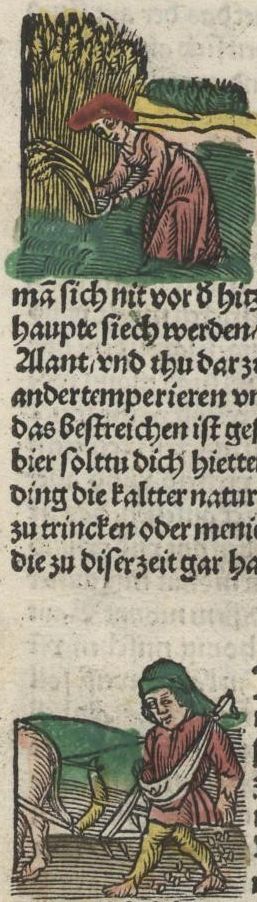 mā sich nit vor d̓ hitz
haupte siech werden/
Alant/vnd thu darzu
andertemperieren vn
das bestreichen ist ges
bier solttu dich hietten
ding die kaltter natur
zu trincken oder menic
die zu diser zeit gar ha